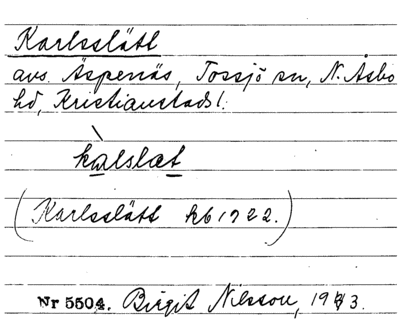 Karlsslätt
avs. Äspenäs, Tossjö sn, N. Åsbo
hd, Kristianstads l.
kàlslæt
(Karlsslätt kb 1722.)
Nr 5504. Birgit Nilsson, 1943.